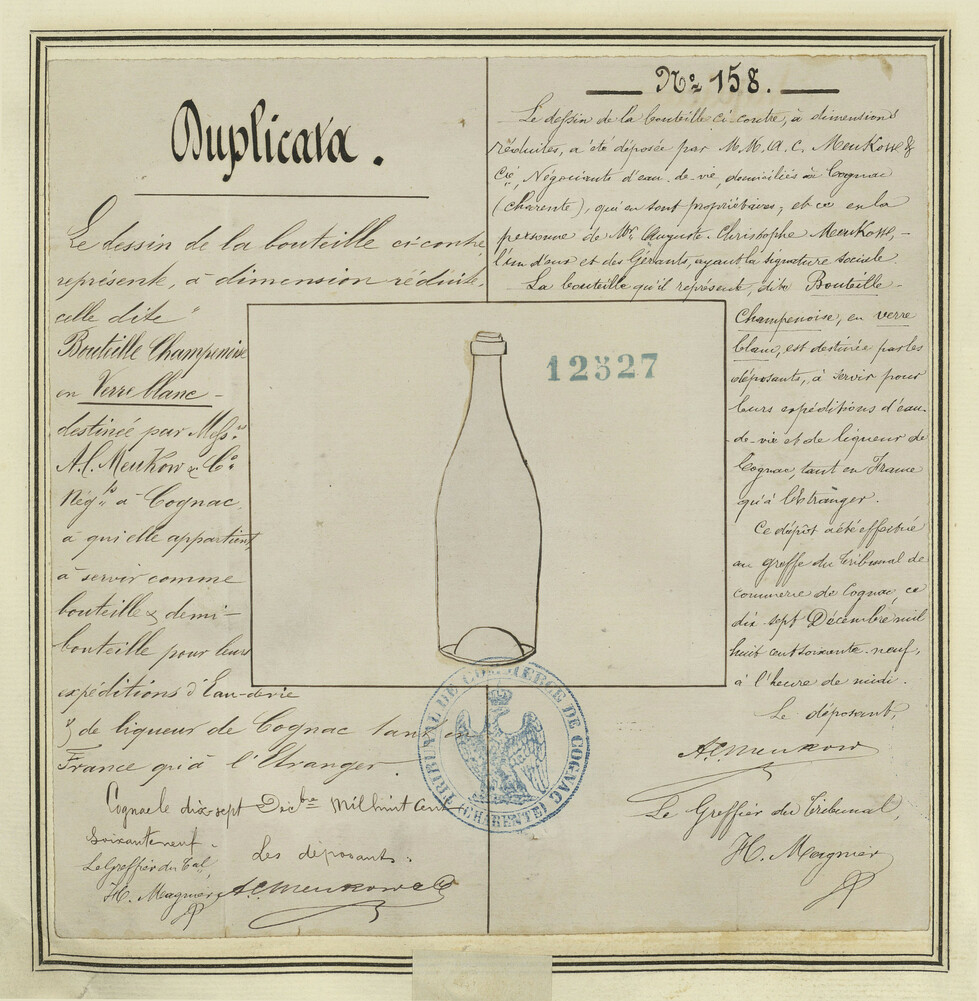 Duplicata.
Le dessin de la bouteille ci-contre
représente, à dimension réduite,
celle dite "
Bouteille Champenoise
en Verre blanc -
destinée par Mess.rs
A.C. Meukow & Co
Nég.ts à Cognac,
à qui elle appartient,
à servir comme
bouteille & demi-
bouteille pour leurs
expéditions d'Eau-de-vie
de liqueur de Cognac tant en
France qu'à l'Etranger.
Cognac le dix sept Decbre Mil huit Cent
soixante neuf.
Le Greffier du Tal,
Les déposants.
H. Magnier
A.C. Meukow & Co
No 158.
Le dessin de la bouteille ci-contre, à dimensions
réduites, a été déposée par M.M. A. C. Meukow &
Cie, Négociants d'eau-de-vie, domiciliés à Cognac
(Charente), qui en sont propriétaires, et ce en la
personne de Mr Auguste-Christophe Meukow, -
l'un d'eux et des Gérants, ayant la signature sociale.
La bouteille qu'il représente, dite Bouteille
Champenoise, en verre
blanc, est destinée par les
déposants, à servir pour
leurs expéditions d'eau-
de-vie et de liqueur de
Cognac, tant en France
qu'à l'étranger.
Ce dépôt a été effectué
au greffe du Tribunal de
commerce de Cognac, ce
dix sept Décembre mil
huit cent soixante-neuf,
à l'heure de midi.
Le déposant,
A.C. Meukow
Le Greffier du Tribunal,
H. Magnier
12527
TRIBUNAL DE COMMERCE DE COGNAC
(CHARENTE)